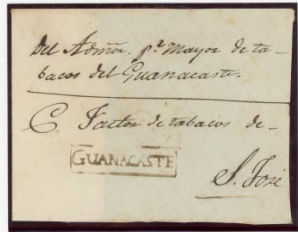 Del Admor. pl. Mayor de ta-
bacos del Guanacaste.
C. Factor de tabacos de-
GUANACASTE
S. José